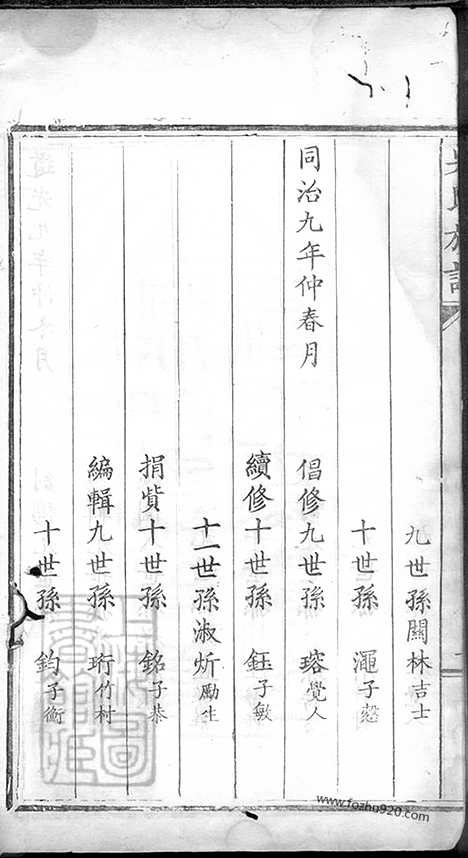 吳氏族譜
九世孫關林吉士
十世孫 澠子愨
同治九年仲春月 倡修九世孫 瑢覺人
續修十世孫 鈺子敏
十一世孫淑炘勵生
捐貲十世孫 銘子恭
編輯九世孫 珩竹村
十世孫 鈞子衡
道光九年仲冬月
www.fozhu920.com